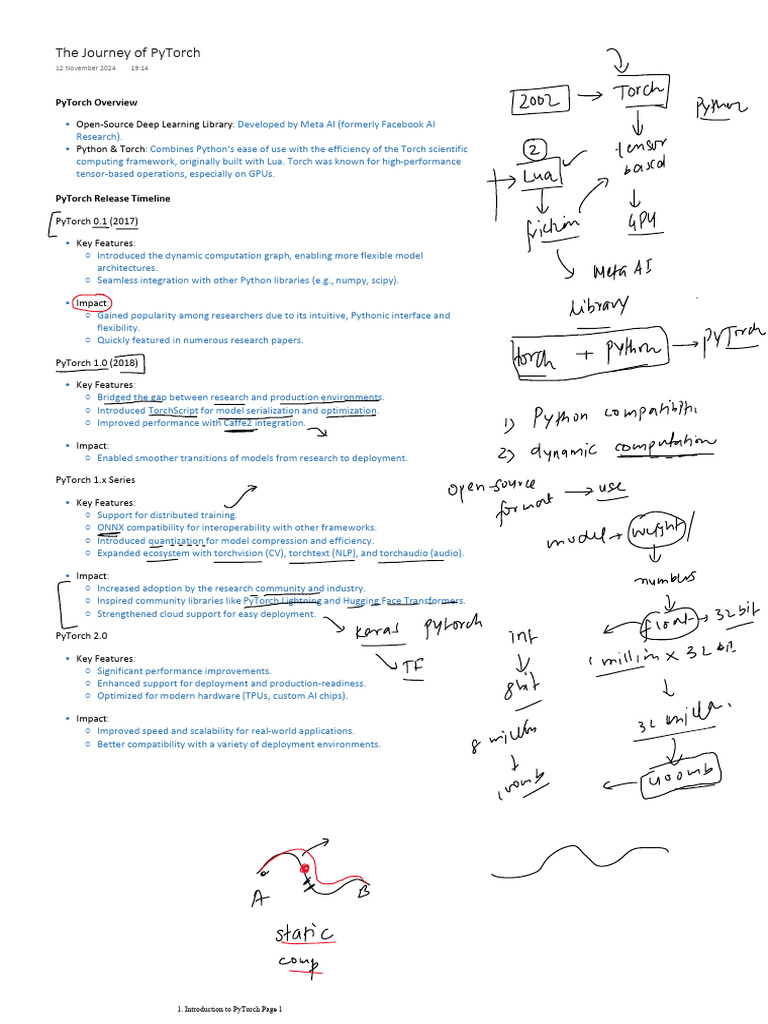 The Journey of PyTorch
12 November 2024 19:14
PyTorch Overview
• Open-Source Deep Learning Library: Developed by Meta AI (formerly Facebook AI
Research).
• Python & Torch: Combines Python's ease of use with the efficiency of the Torch scientific
computing framework, originally built with Lua. Torch was known for high-performance
tensor-based operations, especially on GPUs.
PyTorch Release Timeline
PyTorch 0.1 (2017)
• Key Features:
○ Introduced the dynamic computation graph, enabling more flexible model
architectures.
○ Seamless integration with other Python libraries (e.g., numpy, scipy).
• Impact:
○ Gained popularity among researchers due to its intuitive, Pythonic interface and
flexibility.
○ Quickly featured in numerous research papers.
PyTorch 1.0 (2018)
• Key Features:
○ Bridged the gap between research and production environments.
○ Introduced TorchScript for model serialization and optimization.
○ Improved performance with Caffe2 integration.
• Impact:
○ Enabled smoother transitions of models from research to deployment.
PyTorch 1.x Series
• Key Features:
○ Support for distributed training.
○ ONNX compatibility for interoperability with other frameworks.
○ Introduced quantization for model compression and efficiency.
○ Expanded ecosystem with torchvision (CV), torchtext (NLP), and torchaudio (audio).
• Impact:
○ Increased adoption by the research community and industry.
○ Inspired community libraries like PyTorch Lightning and Hugging Face Transformers.
○ Strengthened cloud support for easy deployment.
PyTorch 2.0
• Key Features:
○ Significant performance improvements.
○ Enhanced support for deployment and production-readiness.
○ Optimized for modern hardware (TPUs, custom AI chips).
• Impact:
○ Improved speed and scalability for real-world applications.
○ Better compatibility with a variety of deployment environments.
2002 → Torch
Python
2
Lua
tensor
based
friction
GPU
Meta AI
Library
torch + Python → PyTorch
1) Python
2) dynamic computation
open-source
format → use
model → weight
numbers
float → 32 bit
Keras PyTorch
TF
int
8 bit
1 million x 32 bit
8 million
400mb
100mb
A B
static
comp
1. Introduction to PyTorch Page 1